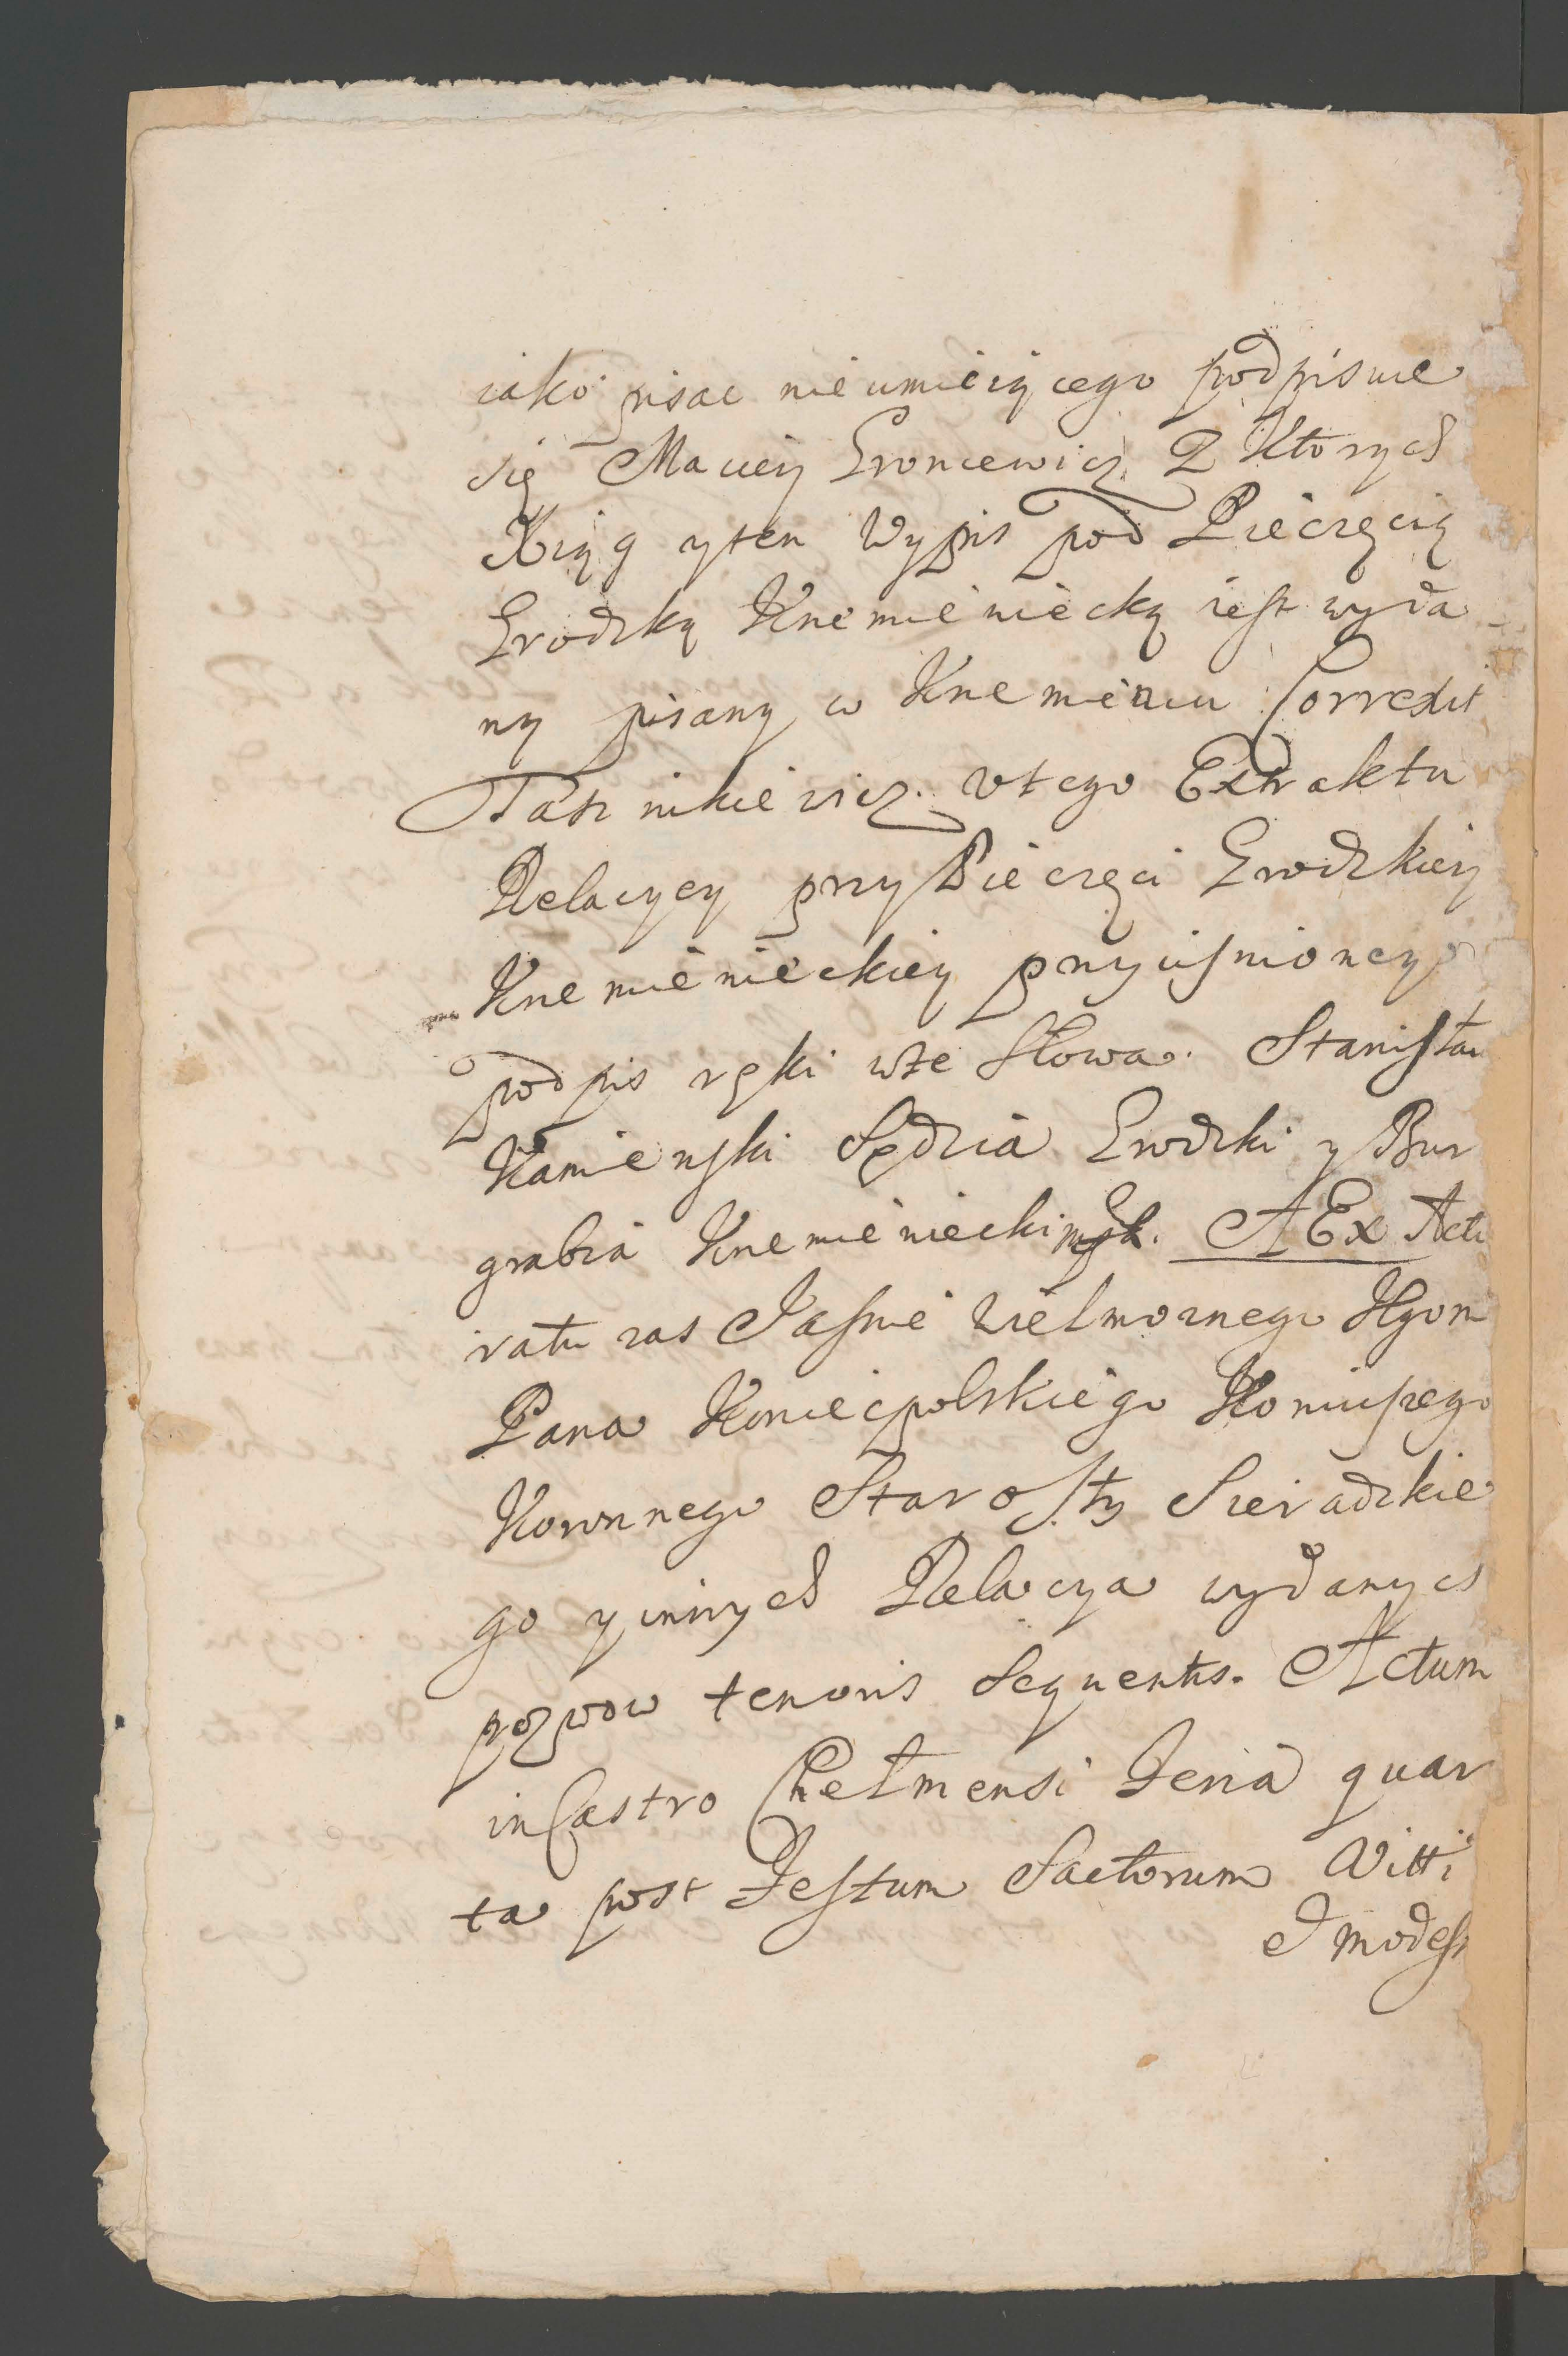 iako pisac nieumieiącego podpisuie
się Maciey Groncewicz Z Ktorych
Xiąg yten Wypis pod Pieczęcią
Grodzką Krzemieniecką iest wyda
ny pisany w Krzemiencu Correxit
vtego Extraktu
Relacyey przy Pieczęci Grodzkiey
Krzemienieckiey przycisnioney
podpis ręki wte Słowa. Stanisław
Kamienski Sędzia Grodzki y Bur
grabia Krzemieniecki mp. A Ex Acti
ratu zas Jasnie Wielmoznego Jgom
Pana Koniecpolskiego Koniuszego
Koronnego Starosty Sieradzkie
go yinnych Relacya wydanych
pozwow tenoris Sequentis. Actum
in Castro Chełmensi Feria quar
ta post Festum Sactorum Vitti
Et modest